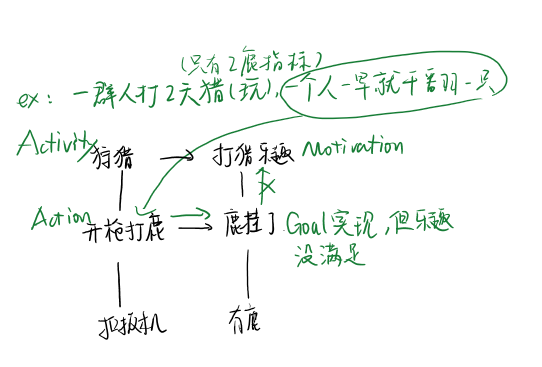 (只有2鹿指标)
ex: 一群人打2天猎(玩),一个人一早就干翻一只
Activity 狩猎 → 打猎乐趣 Motivation
Action 开枪打鹿 → 鹿挂了 Goal实现,但乐趣
没满足
扣扳机 有鹿